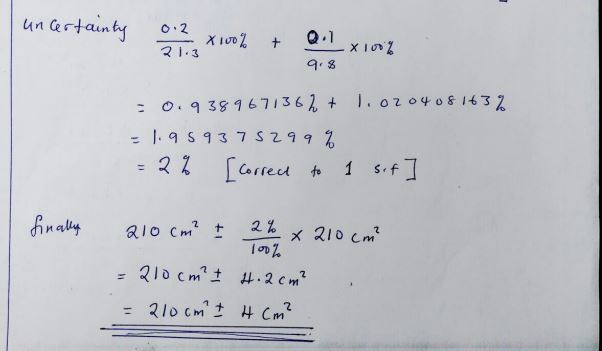 uncertainty 0.2/21.3 × 100% + 0.1/9.8 × 100%
= 0.938967136% + 1.020408163%
= 1.959375299%
= 2% [Correct to 1 s.f]
finally 210 cm² ± 2%/100% × 210 cm²
= 210 cm² ± 4.2 cm²
= 210 cm² ± 4 cm²